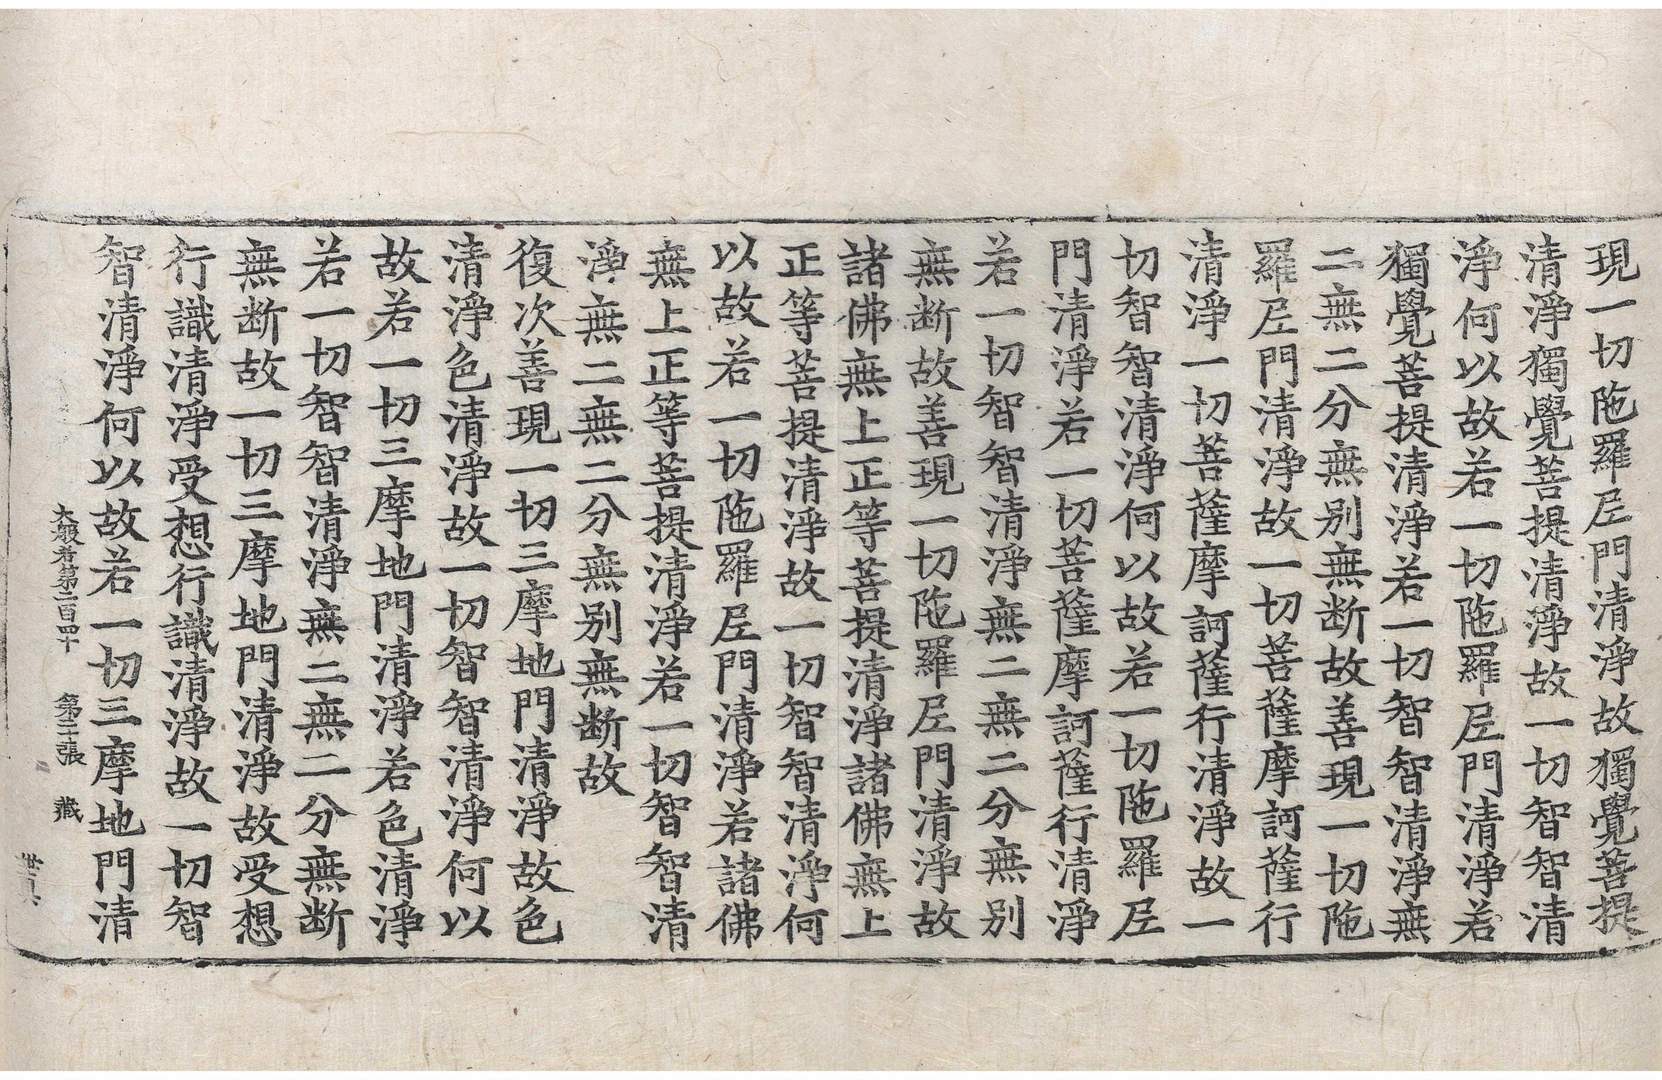 現一切陁羅尼門清淨故獨覺菩提
清淨獨覺菩提清淨故一切智智清
淨何以故若一切陁羅尼門清淨若
獨覺菩提清淨若一切智智清淨無
二無二分無别無断故善現一切陁
羅尼門清淨故一切菩薩摩訶薩行
清淨一切菩薩摩訶薩行清淨故一
切智智清淨何以故若一切陁羅尼
門清淨若一切菩薩摩訶薩行清淨
若一切智智清淨無二無二分無别
無断故善現一切陁羅尼門清淨故
諸佛無上正等菩提清淨諸佛無上
正等菩提清淨故一切智智清淨何
以故若一切陁羅尼門清淨若諸佛
無上正等菩提清淨若一切智智清
淨無二無二分無别無断故
復次善現一切三摩地門清淨故色
清淨色清淨故一切智智清淨何以
故若一切三摩地門清淨若色清淨
若一切智智清淨無二無二分無断
無断故一切三摩地門清淨故受想
行識清淨受想行識清淨故一切智
智清淨何以故若一切三摩地門清
大般若第二百四十 第二十張 藏
世具